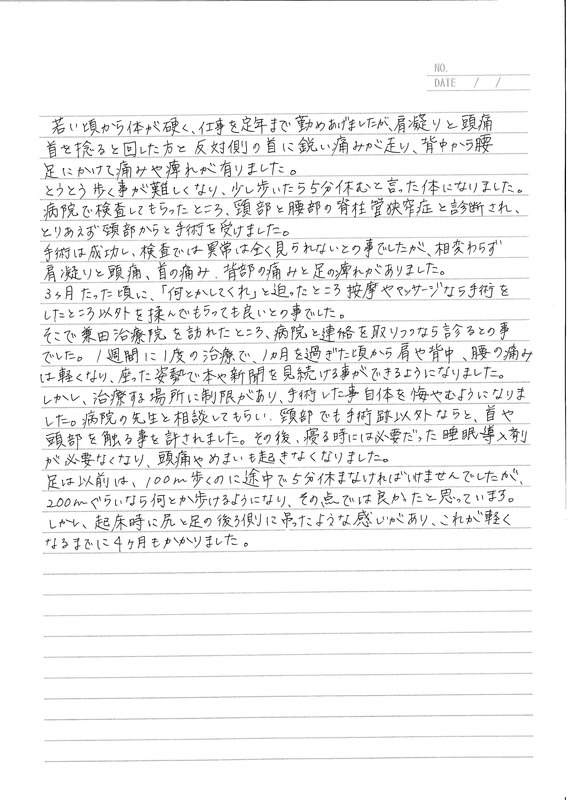 NO.
DATE / /
若い頃から体が硬く、仕事を定年まで勤めあげましたが、肩凝りと頭痛
首を捻ると回した方と反対側の首に鋭い痛みが走り、背中から腰
足にかけて痛みや痺れが有りました。
とうとう歩く事が難しくなり、少し歩いたら5分休むと言った体になりました。
病院で検査してもらったところ、頸部と腰部の脊柱管狭窄症と診断され、
とりあえず頸部からと手術を受けました。
手術は成功し、検査では異常は全く見られないとの事でしたが、相変わらず
肩凝りと頭痛、首の痛み、背部の痛みと足の痺れがありました。
3ヶ月たった頃に、「何とかしてくれ」と迫ったところ按摩やマッサージなら手術を
したところ以外を揉んでもらっても良いとの事でした。
そこで粟田治療院を訪れたところ、病院と連絡を取りつつなら診るとの事
でした。1週間に1度の治療で、1ヵ月を過ぎた頃から肩や背中、腰の痛み
は軽くなり、座った姿勢で本や新聞を見続ける事ができるようになりました。
しかし、治療する場所に制限があり、手術した事自体を悔やむようになりま
した。病院の先生と相談してもらい、頸部でも手術跡以外ならと、首や
頭部を触る事を許されました。その後、寝る時には必要だった睡眠導入剤
が必要なくなり、頭痛やめまいも起きなくなりました。
足は以前は、100m歩くのに途中で5分休まなければいけませんでしたが、
200mぐらいなら何とか歩けるようになり、その点では良かたと思っています。
しかし、起床時に尻と足の後ろ側に吊ったような感じがあり、これが軽く
なるまでに4ヶ月もかかりました。